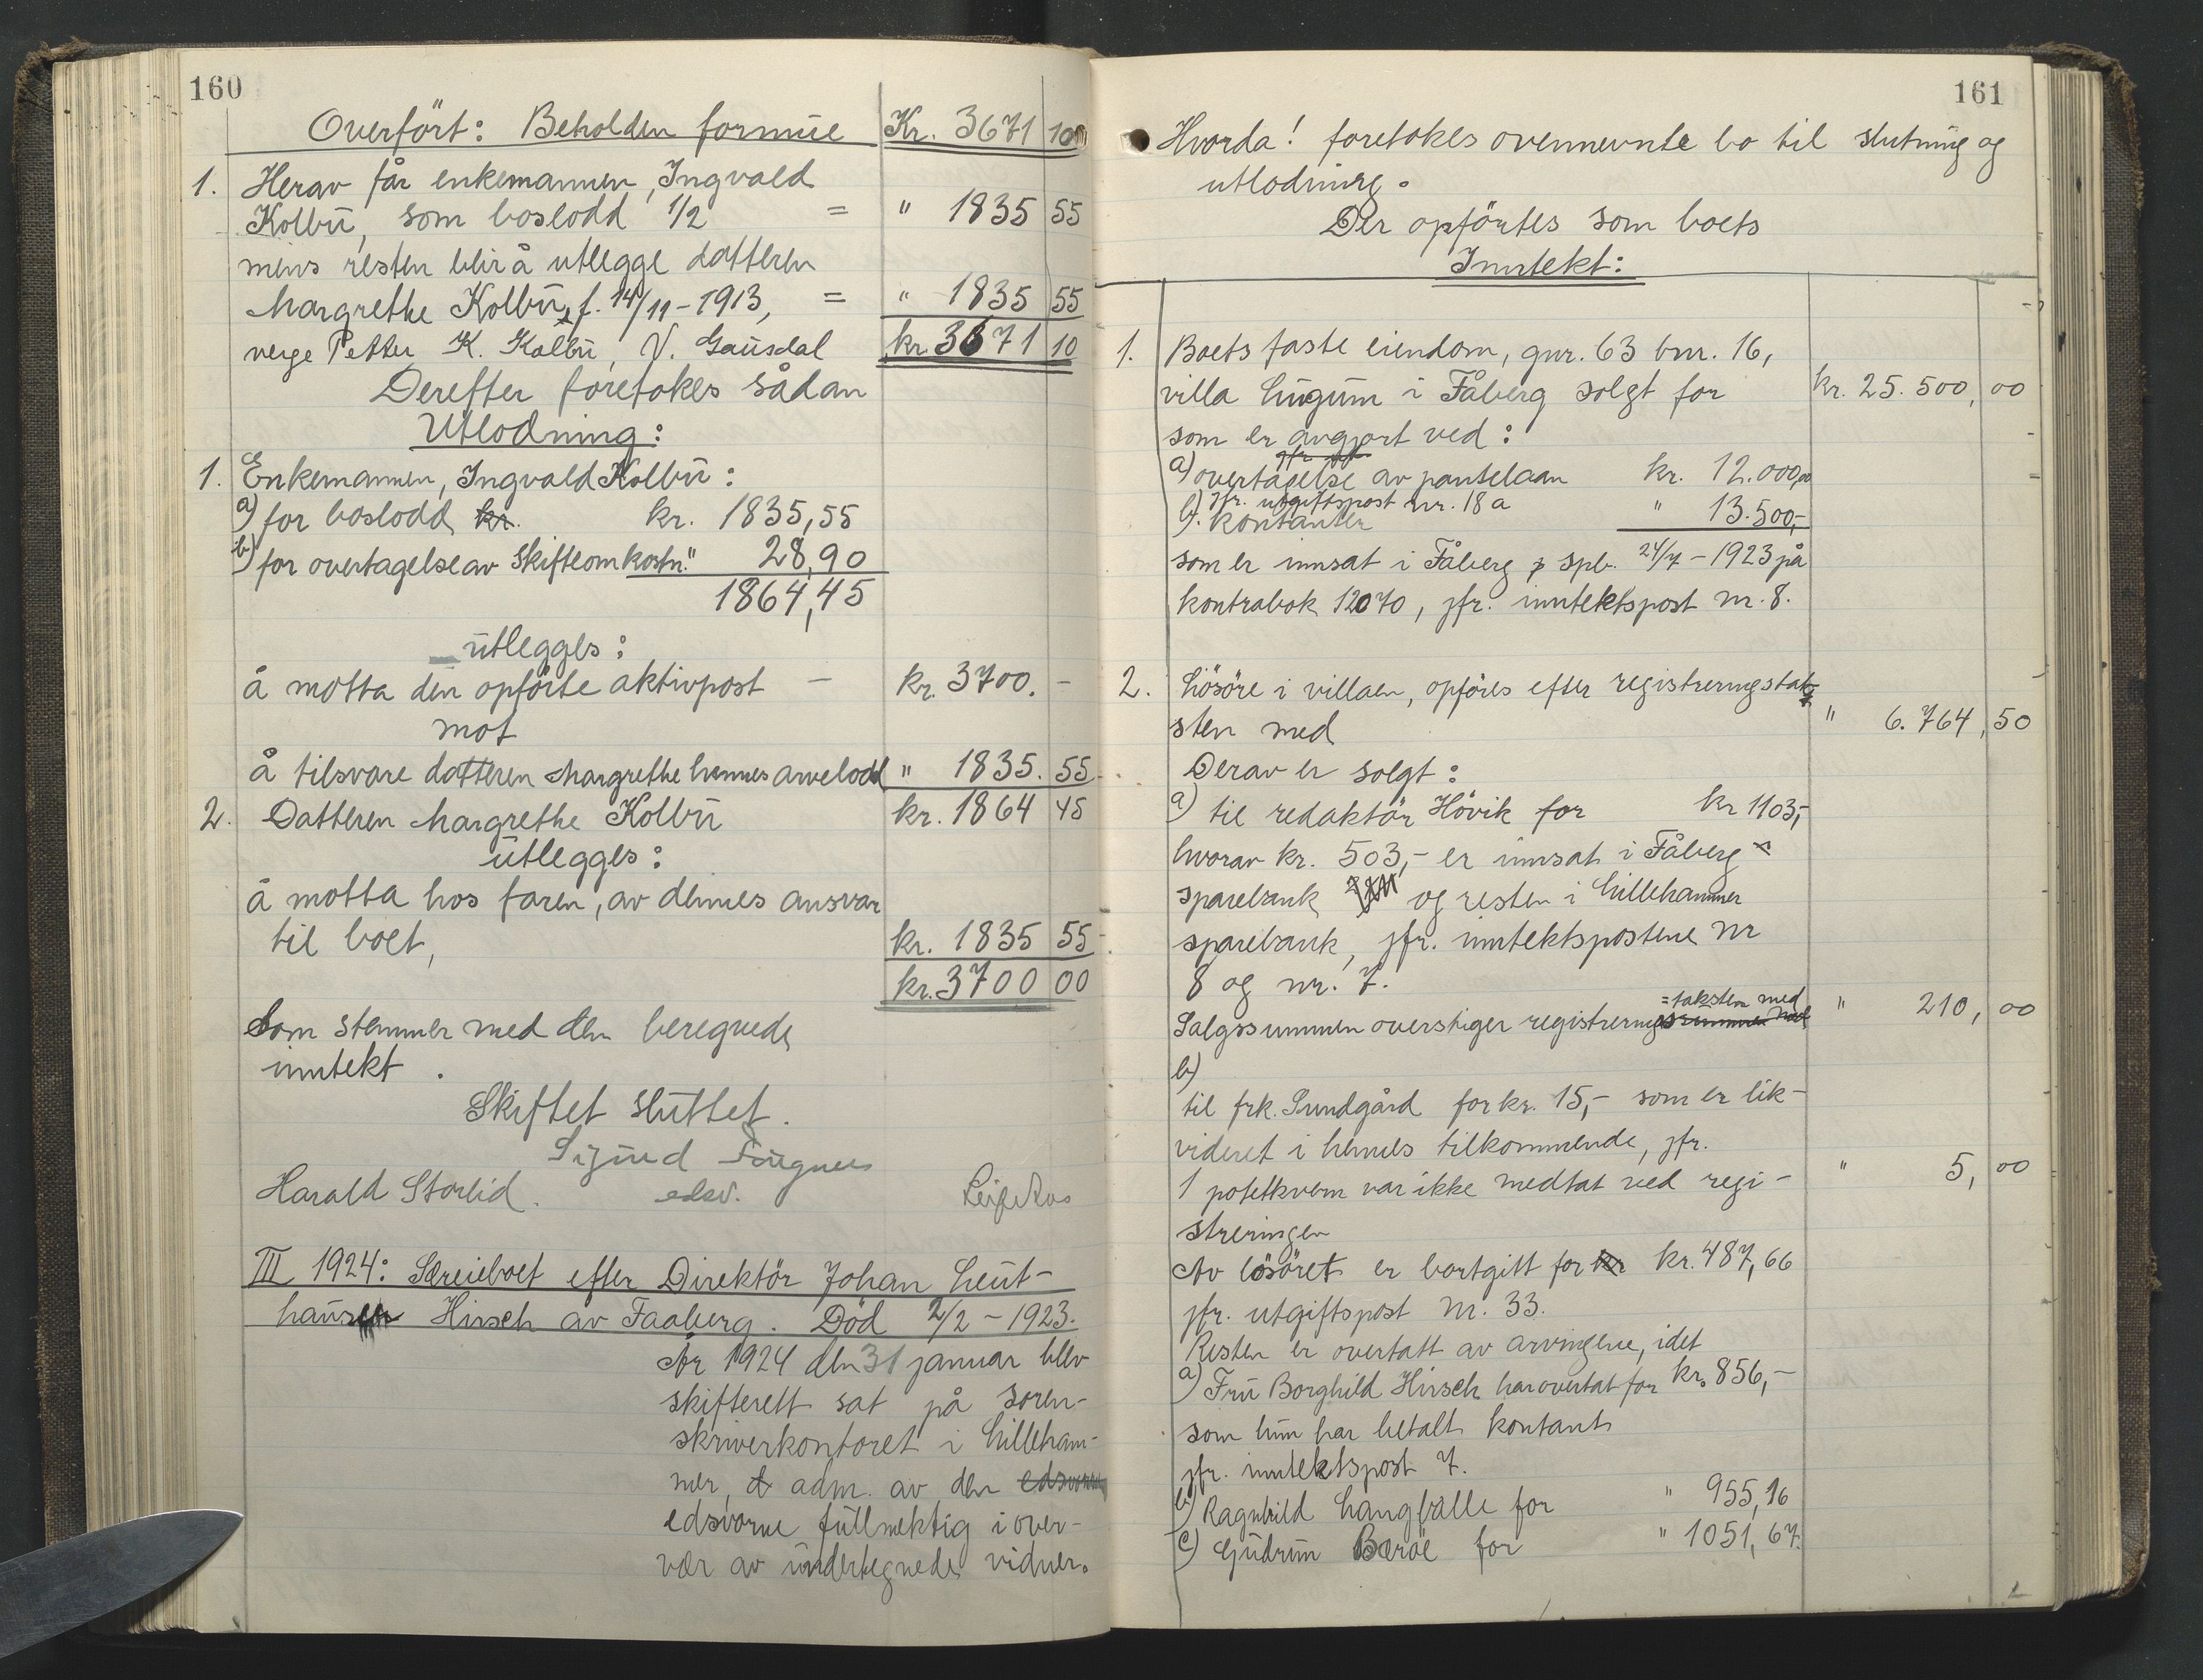 160
Overfört: Beholden formue Kr. 3671 10
1. Herav får enkemannen, Ingvald
Kolbu, som boslodd 1/2 = " 1835 55
mens resten blir å utlegge datteren
Margrethe Kolbu, f. 14/11 - 1913, = " 1835 55
verge Petter K. Kolbu, V. Gausdal kr. 3671 10
Derefter foretokes sådan
Utlodning:
1. Enkemannen, Ingvald Kolbu:
a) for boslodd kr. kr. 1835,55
b) for overtagelse av skifteomkostn. " 28,90
1864,45
utlegges:
å motta den opförte aktivpost - kr. 3700. -
mot
å tilsvare datteren Margrethe hennes arvelodd " 1835. 55
kr. 1864 45
2. Datteren Margrethe Kolbu
utlegges:
å motta hos faren, av dennes ansvar
til boet, kr. 1835 55
kr. 3700 00
Som stemmer med den beregnede
inntekt.
Skiftet sluttet.
Sigurd Fougner
Harald Storlid. edsv. Leif Aas
III 1924: Særeieboet efter Direktör Johan Leut-
hauser Hirsch av Faaberg. Död 2/2 - 1923.
År 1924 den 31 januar blev
skifterett sat på soren-
skriverkontoret i Lilleham-
mer, adm. av den edsvorne
edsvorne fullmektig i over-
vær av undertegnede vidner.
161
Hvorda! foretokes ovennevnte bo til slutning og
utlodning.
Der opförtes som boets
Inntekt:
1. Boets faste eiendom, gnr. 63 bnr. 16,
villa Lugum i Fåberg solgt for kr. 25.500, 00
som er avgjort ved:
a) overtagelse av pantelaan kr. 12.000,00
jfr. utgiftspost nr. 18 a
b). kontanter " 13.500,-
som er innsat i Fåberg spb. 24/7 - 1923 på
kontrabok 12070, jfr. inntektspost nr. 8.
2. Lösöre i villaen, opföres efter registreringstak-
sten med " 6.764, 50
Derav er solgt:
a) til redaktör Hövik for kr 1103,-
hvorav kr. 503,- er innsat i Fåberg
sparebank og resten i Lillehammer
sparebank, jfr. inntektspostene nr
8 og nr. 7.
=taksten med
Salgssummen overstiger registreringssummen med " 210, 00
b)
til frk. Sundgård for kr. 15,- som er lik-
videret i hennes tilkommende, jfr.
1 potetkvern var ikke medtat ved regi- " 5, 00
streringen
Av lösöret er bortgitt for kr kr. 487,66
jfr. utgiftspost nr. 33.
Resten er overtatt av arvingene, idet
a) Fru Borghild Hirsch har overtat for kr. 856,-
som hun har betalt kontant
jfr. inntektspost 7.
b) Ragnhild Langballe for " 955,16
c) Gudrun Beröe for " 1051,67.